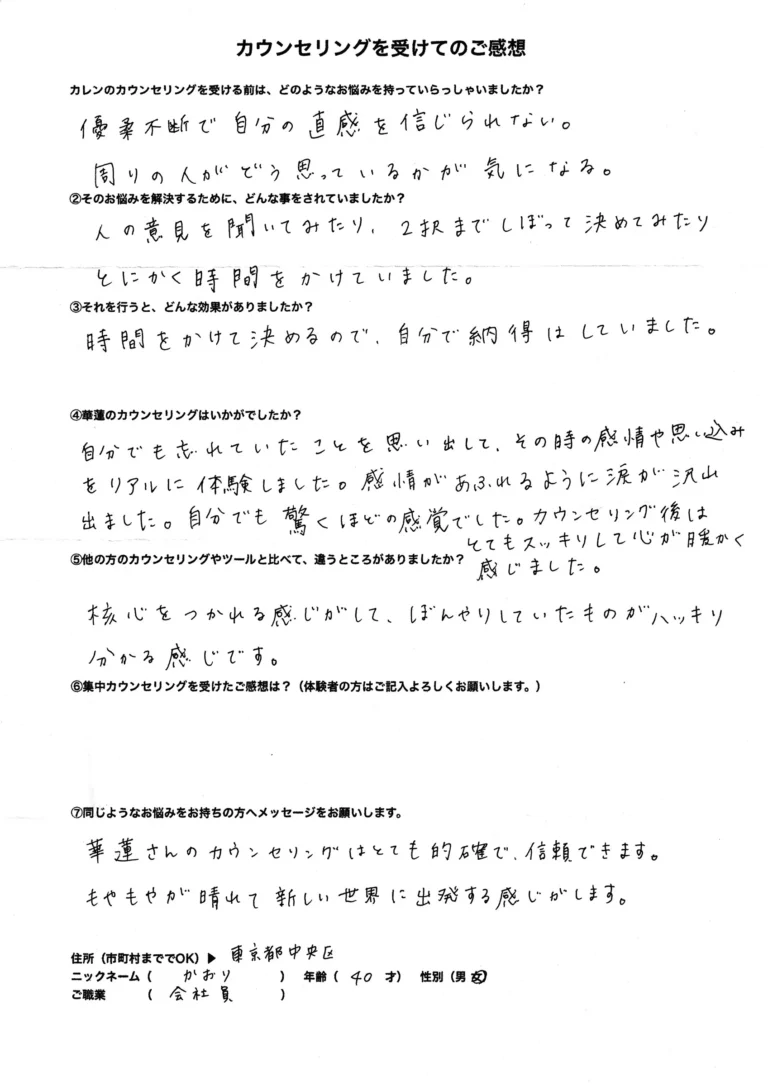 カウンセリングを受けてのご感想
カレンのカウンセリングを受ける前は、どのようなお悩みを持っていらっしゃいましたか？
優柔不断で自分の直感を信じられない。
周りの人がどう思っているかが気になる。
②そのお悩みを解決するために、どんな事をされていましたか？
人の意見を聞いてみたり、2択までしぼって決めてみたり
とにかく時間をかけていました。
③それを行うと、どんな効果がありましたか？
時間をかけて決めるので、自分で納得はしていました。
④華蓮のカウンセリングはいかがでしたか？
自分でも忘れていたことを思い出して、その時の感情や思い込み
をリアルに体験しました。感情があふれるように涙が沢山
出ました。自分でも驚くほどの感覚でした。カウンセリング後は
とてもスッキリして心が暖かく
感じました。
⑤他の方のカウンセリングやツールと比べて、違うところがありましたか？
核心をつかれる感じがして、ぼんやりしていたものがハッキリ
分かる感じです。
⑥集中カウンセリングを受けたご感想は？（体験者の方はご記入よろしくお願いします。）
⑦同じようなお悩みをお持ちの方へメッセージをお願いします。
華蓮さんのカウンセリングはとても的確で、信頼できます。
もやもやが晴れて新しい世界に出発する感じがします。
住所（市町村まででOK）▶ 東京都中央区
ニックネーム（ かおり ） 年齢（ 40 才） 性別（男 女）
ご職業 （ 会社員 ）